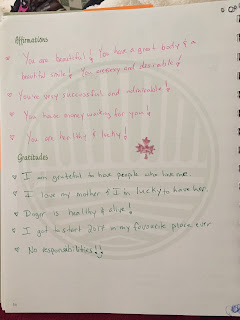 Affirmations
You are beautiful! You have a great body & a
beautiful smile! You are sexy and desirable!
You're very successful and admirable!
You have money working for you!
You are healthy & lucky!
Gratitudes
I am grateful to have people who love me.
I love my mother & I'm lucky to have her.
is healthy & alive!
I got to start 2018 in my favourite place ever
No responsibilities!